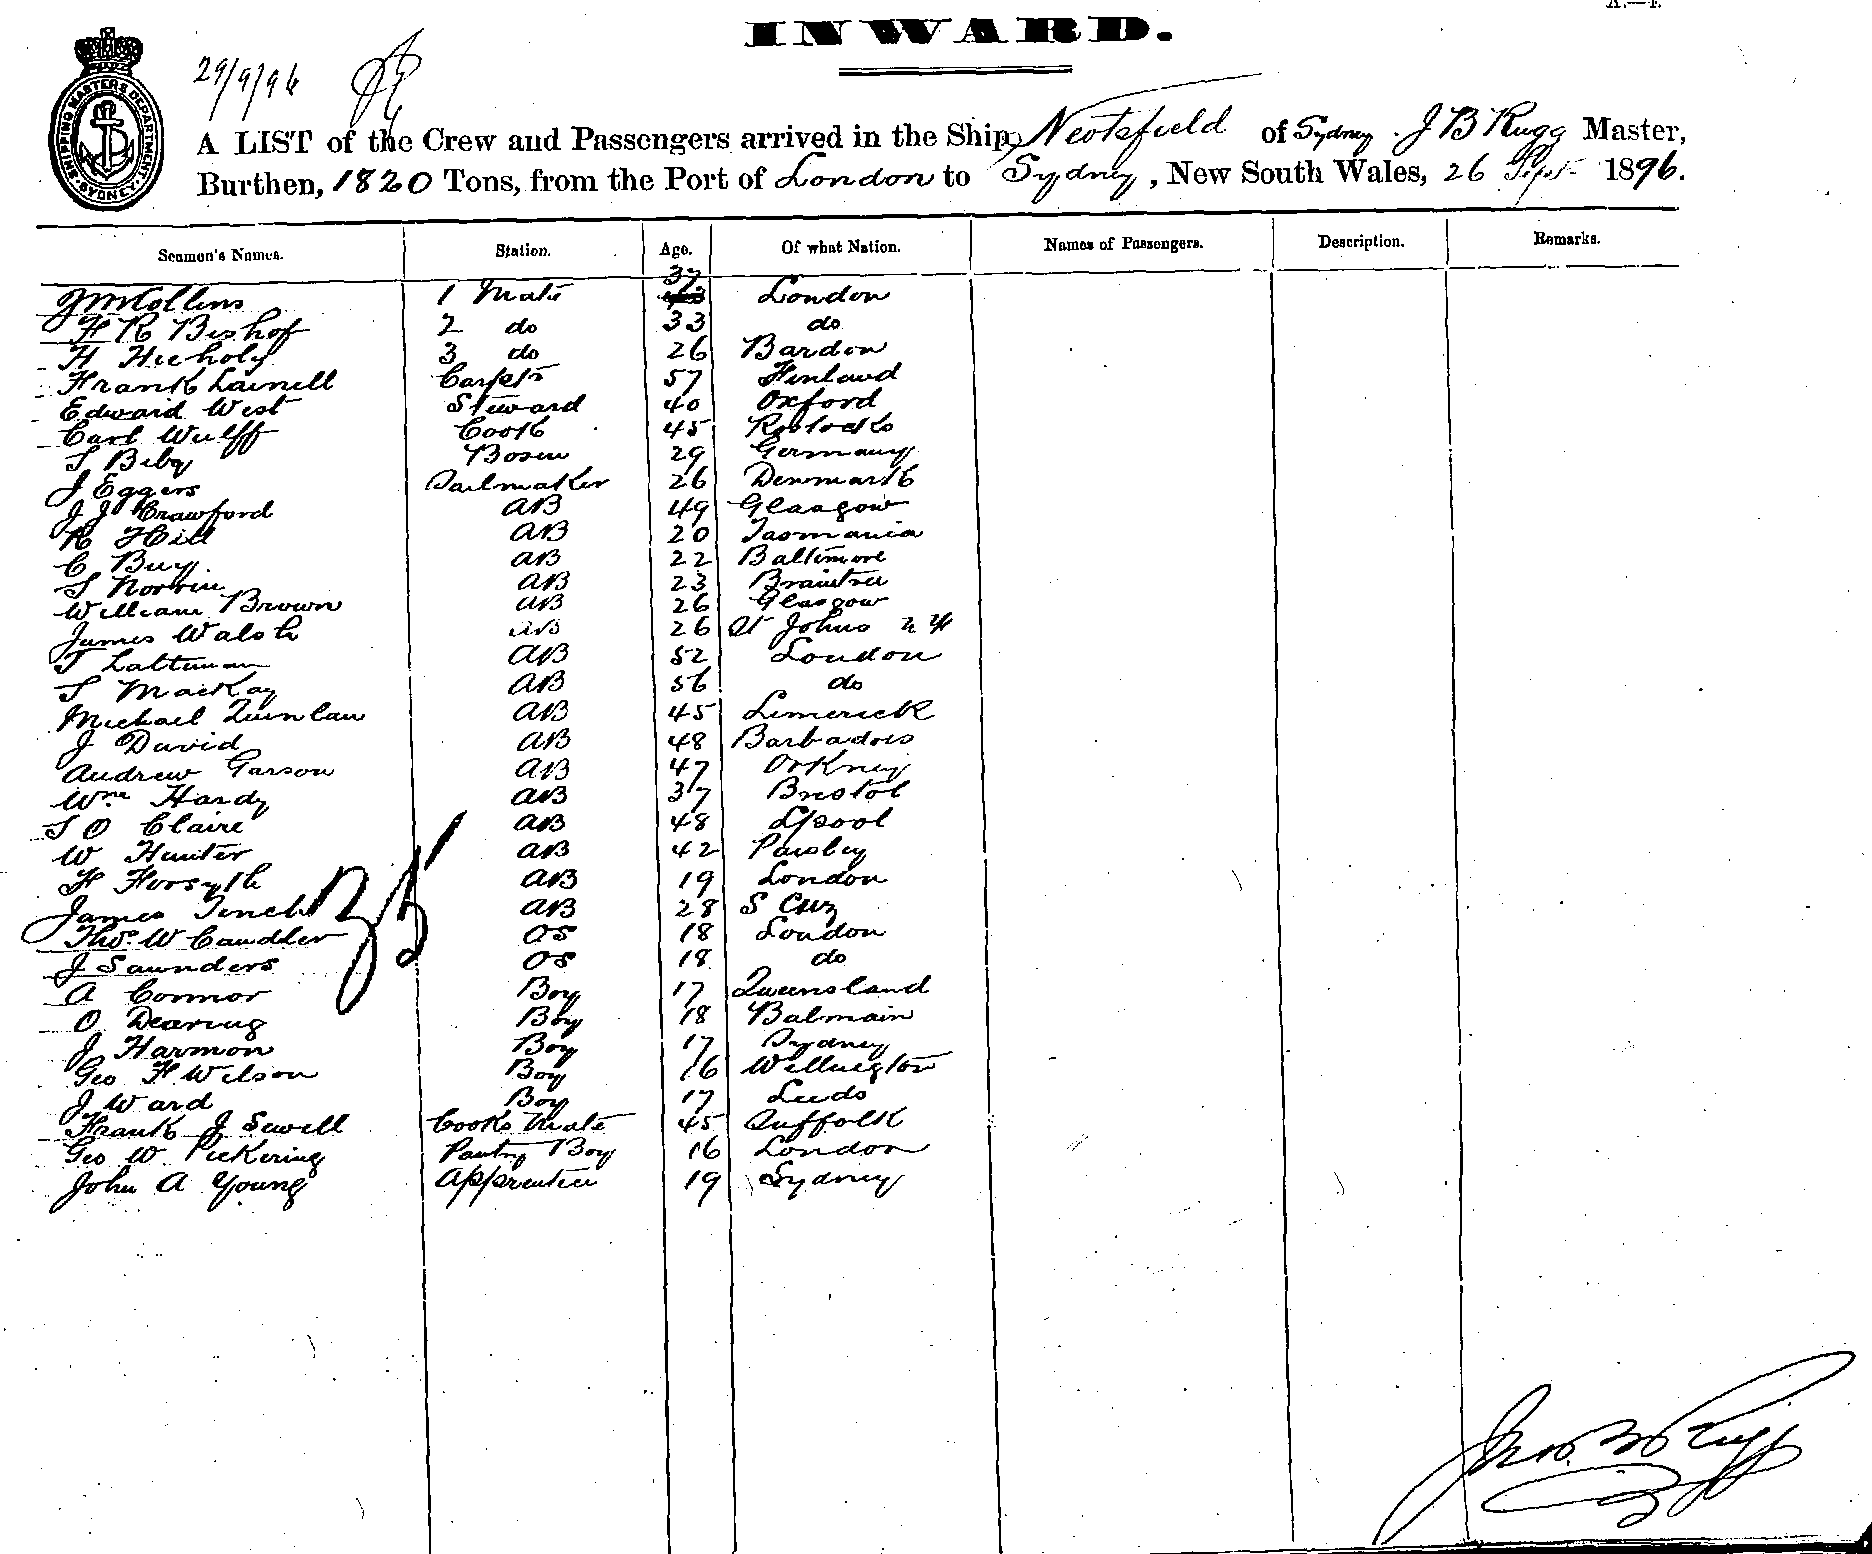 INWARD.
29/9/96
SHIPPING MASTERS DEPARTMENT SYDNEY
A LIST of the Crew and Passengers arrived in the Ship Neotsfield of Sydney. J B Rugg Master,
Burthen, 1820 Tons, from the Port of London to Sydney, New South Wales, 26 Sept 1896.
Seamen's Names. Station. Age. Of what Nation. Names of Passengers. Description. Remarks.
J M Collins 1 Mate 37 London
F R Bishop 2 do 33 do
H 3 do 26 Bardon
Frank Lainell Carptr 57 Finland
Edward West Steward 40 Oxford
Carl Wulff Cook 45 Rostock
Bosun 29 Germany
J Eggers Sailmaker 26 Denmark
J J Crawford AB 49 Glasgow
R Hill AB 20 Tasmania
C Buy AB 22 Baltimore
AB 23 Braintree
William Brown AB 26 Glasgow
James Walsh AB 26 St Johns
AB 52 London
MacKay AB 56 do
Michael Quinlan AB 45 Limerick
J David AB 48 Barbadois
Andrew Garson AB 47 Orkney
Wm Hardy AB 37 Bristol
O Claire AB 48 Lpool
W Hunter AB 42 Paisley
H Forsyth AB 19 London
James Tench AB 28 S
Thos. W Caudler OS 18 London
J Saunders OS 18 do
A Connor Boy 17 Queensland
O Dearing Boy 18 Balmain
J Harmon Boy 17 Sydney
Geo F Wilson Boy 16 Wellington
J Ward Boy 17 Leeds
Frank J Sewell Cooks Mate 45 Suffolk
Geo W. Pickering Pantry Boy 16 London
John A Young Apprentice 19 Sydney
35
Jno. B Rugg